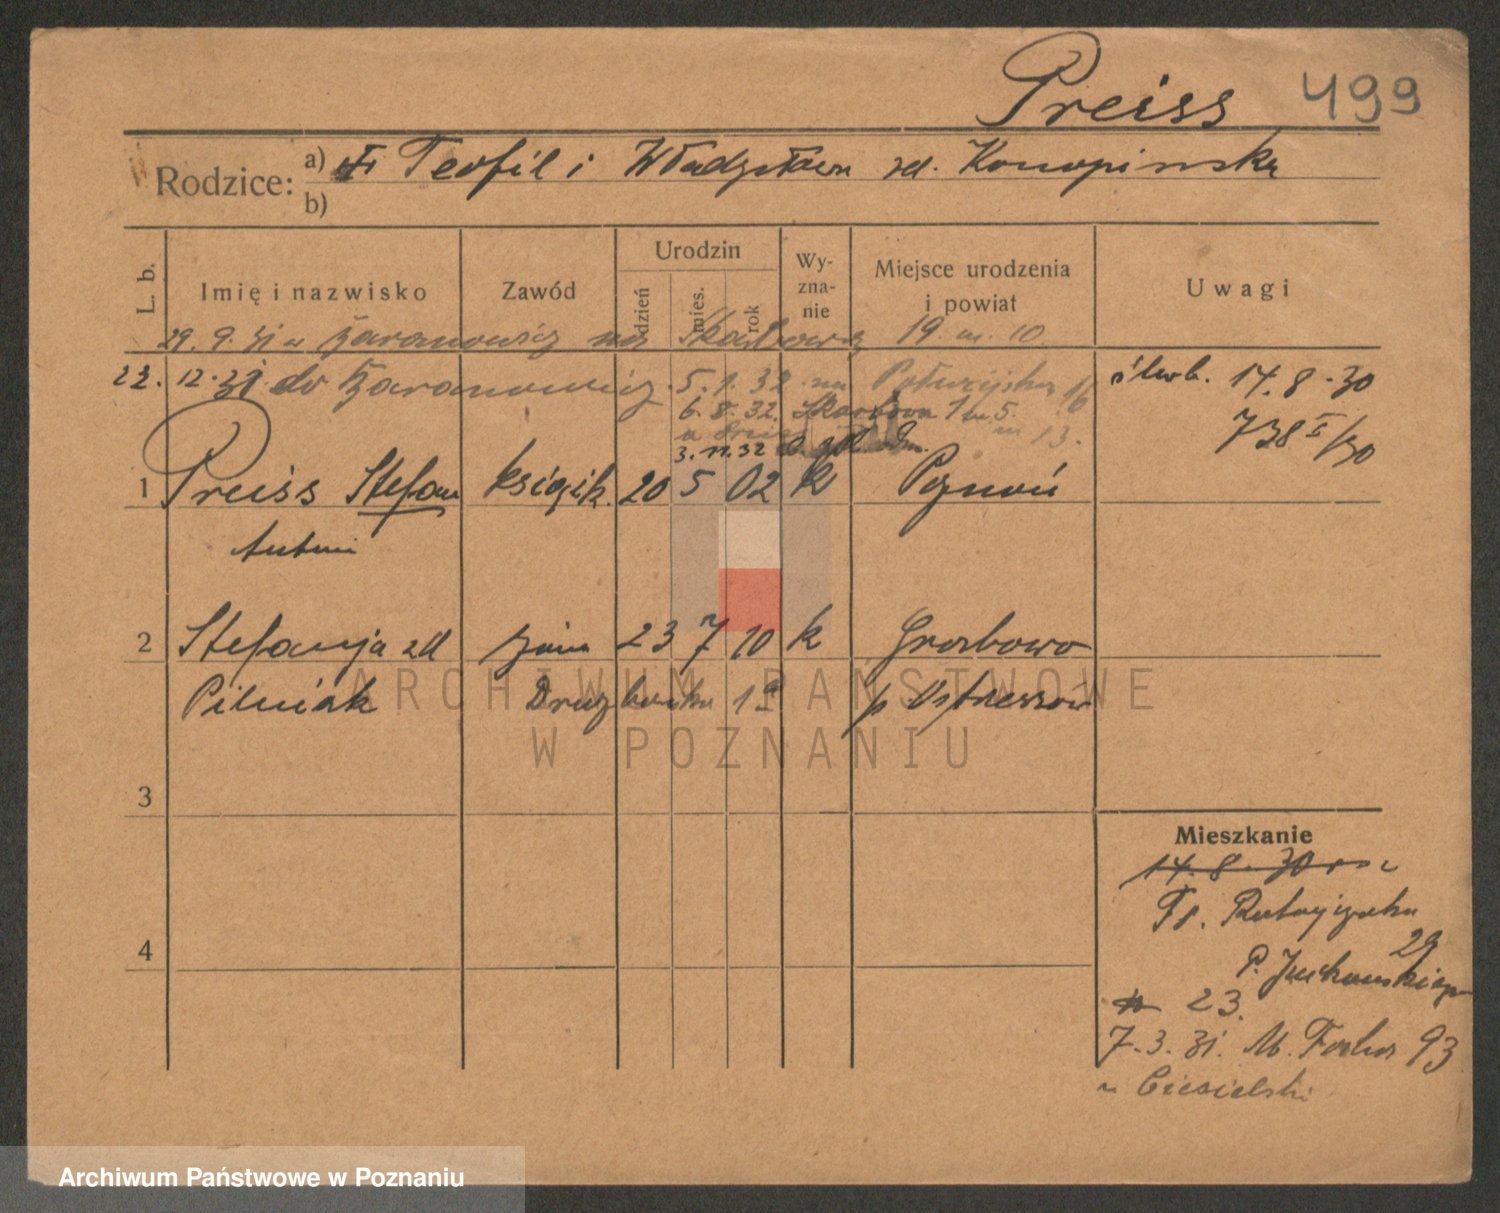 Preiss 499
Rodzice: a) Teofil i Władysława zd. Konopińska
b)
L. b. Imię i nazwisko Zawód Urodzin dzień mies. rok Wyznanie Miejsce urodzenia i powiat Uwagi
29. 9. 31 Baranowicz na Skarbowa 19 m. 10.
22. 12. 31 do Baranowicz. 5. 1. 32 na 16
ślub. 14. 8. 30
6. 8. 32. Skarbowa 1 m 5.
m 13.
738 II/30
3. 11. 32
1 Preiss Stefan księgik. 20 5 02 k Poznań
Antoni
2 Stefanja zd żona 23 7 10 k Grabowo
Pilniak 1a p Ostrzeszów
ARCHIWUM PAŃSTWOWE
W POZNANIU
3
Mieszkanie
14. 8. 30
Fr. Ratajczaka
29
4
P.
23.
7. 3. 31. M. Focha 93
u Ciesielski
Archiwum Państwowe w Poznaniu